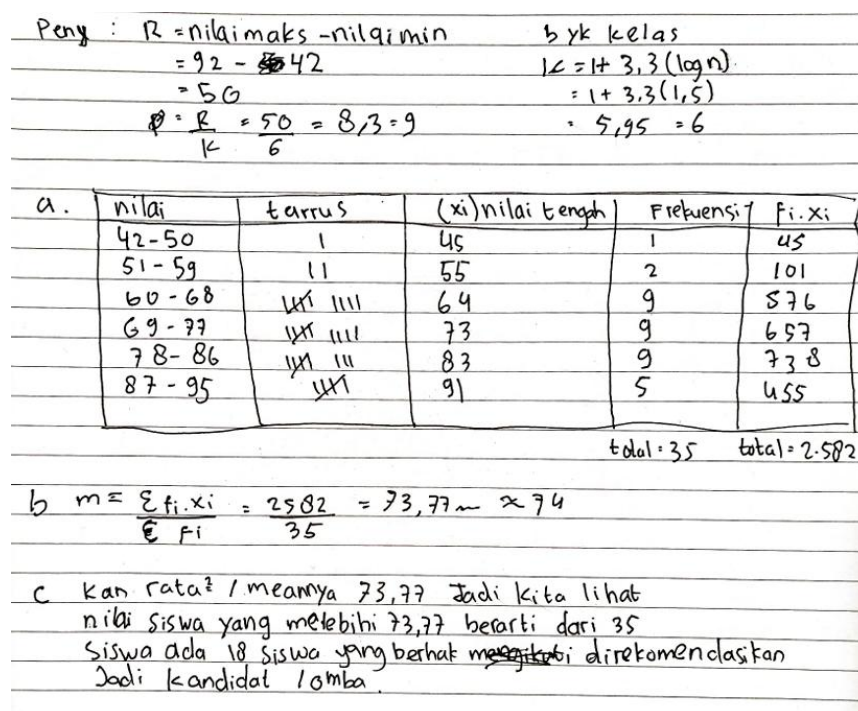 Peny : R = nilai maks - nilai min
= 92 - 42
= 50
P = R/K = 50/6 = 8,3 = 9
byk kelas
K = 1 + 3,3 (log n)
= 1 + 3,3 (1,5)
= 5,95 = 6
a. nilai tarrus (xi) nilai tengah Frekuensi fi.xi
42-50 | 45 1 45
51-59 || 55 2 101
60-68 |||| |||| 64 9 576
69-77 |||| |||| 73 9 657
78-86 |||| ||| 83 9 738
87-95 |||| 91 5 455
total = 35 total = 2.582
b m = Σ fi.xi / Σ Fi = 2582/35 = 73,77 ~ ≈ 74
c kan rata² / meannya 73,77 Jadi kita lihat
nilai siswa yang melebihi 73,77 berarti dari 35
siswa ada 18 siswa yang berhak direkomendasikan
Jadi kandidat lomba.